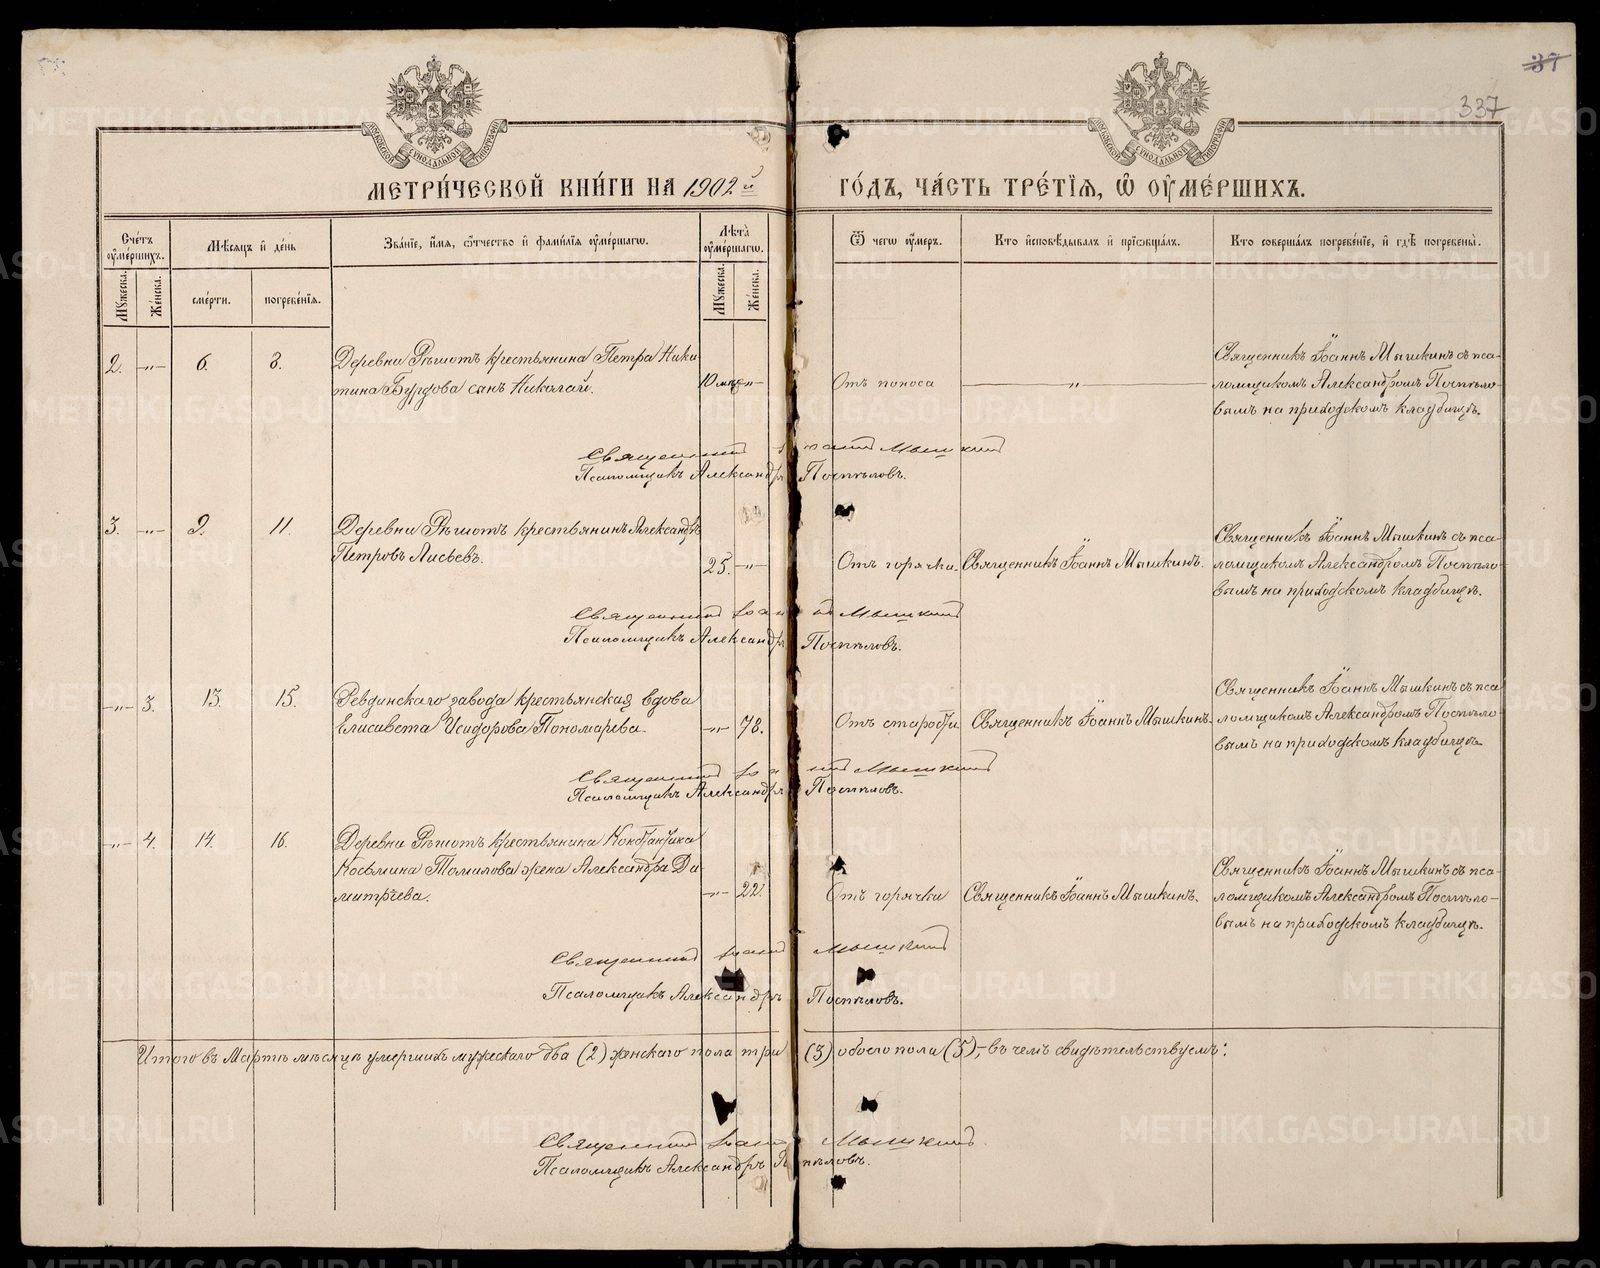 337
37
МОСКОВСКОЙ СУНОДАЛЬНОЙ ТИПОГРАФІИ
МОСКОВСКОЙ СУНОДАЛЬНОЙ ТИПОГРАФІИ
МЕТРИ́ЧЕСКОЙ КНИ́ГИ НА 1902й ГО́ДЪ, ЧА́СТЬ ТРЕ́ТЇѦ, Ѡ҆ ОУ҆МЕ́РШИХЪ.
Сче́тъ оу҆ме́ршихъ.
Мꙋ́жеска.
Же́нска.
Мѣ́сяцъ и҆ де́нь
сме́рти.
погребе́нїѧ.
Зва́нїе, и҆́мѧ, ѻ҆́тчество и҆ фами́лїѧ оу҆ме́ршагѡ.
Лѣ́та оу҆ме́ршагѡ.
Мꙋ́жеска.
Же́нска.
Ѿ чегѡ̀ оу҆́меръ.
Кто̀ и҆сповѣ́дывалъ и҆ прїѡбща́лъ.
Кто̀ соверша́лъ погребе́нїе, и҆ гдѣ̀ погребены̀.
2. —„— 6. 8. Деревни Рѣшотъ крестьянина Петра Ники-
тина Бурдова сынъ Николай.
10 мѣс —„—
Отъ поноса
—„—
Священникъ Іоаннъ Мышкинъ съ пса-
ломщикомъ Александромъ Поспѣло-
вымъ на приходскомъ кладбищѣ.
Священникъ Іоаннъ Мышкинъ
Псаломщикъ Александръ Поспѣловъ.
3. —„— 9. 11. Деревни Рѣшотъ крестьянинъ Александръ
Петровъ Лисьевъ.
25. —„—
Отъ горячки.
Священникъ Іоаннъ Мышкинъ.
Священникъ Іоаннъ Мышкинъ съ пса-
ломщикомъ Александромъ Поспѣло-
вымъ на приходскомъ кладбищѣ.
Священникъ Іоаннъ Мышкинъ
Псаломщикъ Александръ Поспѣловъ.
—„— 3. 13. 15. Ревдинскаго завода крестьянская вдова
Елисавета Исидорова Пономарева.
—„— 78.
Отъ старости
Священникъ Іоаннъ Мышкинъ.
Священникъ Іоаннъ Мышкинъ съ пса
ломщикомъ Александромъ Поспѣло-
вымъ на приходскомъ кладбищѣ.
Священникъ Іоаннъ Мышкинъ
Псаломщикъ Александръ Поспѣловъ.
—„— 4. 14. 16. Деревни Рѣшотъ крестьянина Константина
Косьмина Томилова жена Александра Ди-
митріева.
—„— 22.
Отъ горячки
Священникъ Іоаннъ Мышкинъ.
Священникъ Іоаннъ Мышкинъ съ пса-
ломщикомъ Александромъ Поспѣло-
вымъ на приходскомъ кладбищѣ.
Священникъ Іоаннъ Мышкинъ
Псаломщикъ Александръ Поспѣловъ.
Итого въ Мартѣ мѣсяцѣ умершихъ мужскаго два (2) женскаго пола три (3) обоего пола (5), въ чемъ свидѣтельствуемъ:
Священникъ Іоаннъ Мышкинъ.
Псаломщикъ Александръ Поспѣловъ.
METRIKI.GASO-URAL.RU